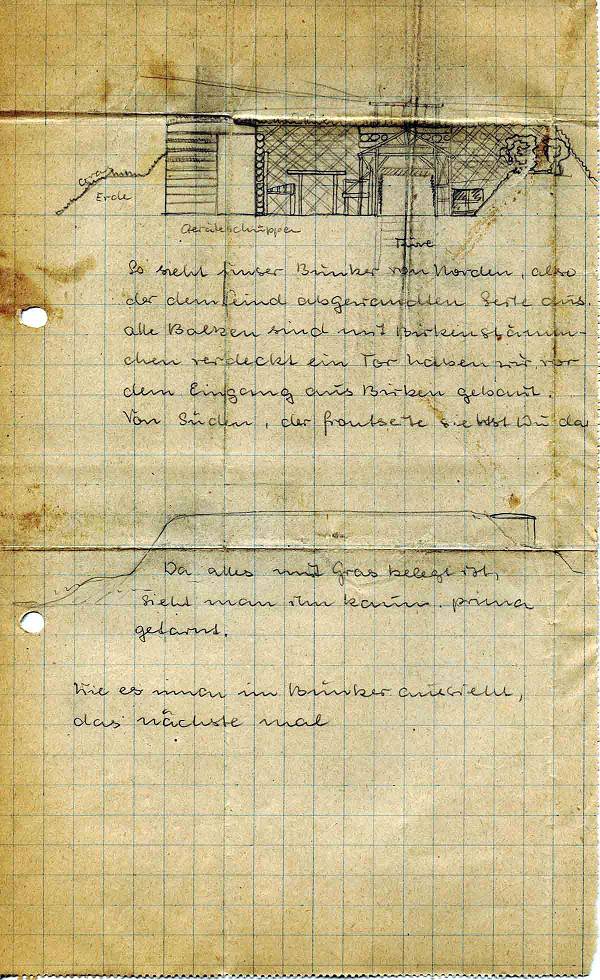 Erde
Geräteschuppen
Türe
So sieht unser Bunker von Norden, also
der dem Feind abgewandten Seite aus.
alle Balken sind mit Birkenstämm-
chen verdeckt ein Tor haben wir vor
dem Eingang aus Birken gebaut.
Von Süden, der Frontseite siehst Du da
Da alles mit Gras belegt ist,
sieht man ihn kaum. prima
getarnt.
Wie es innen im Bunker aussieht,
das nächste mal